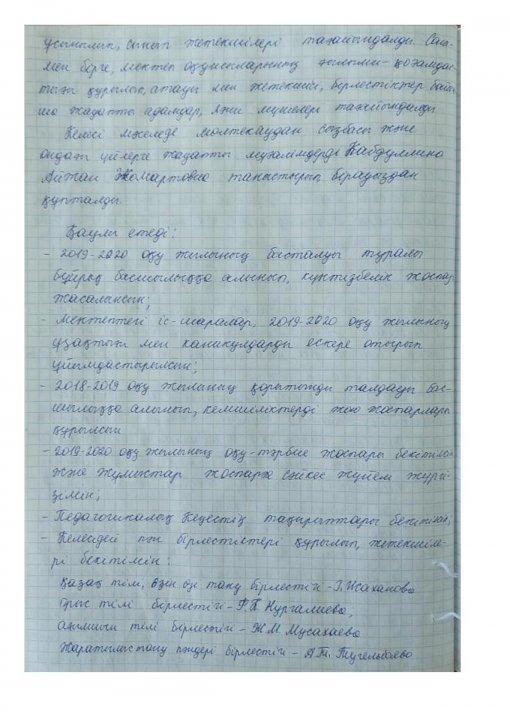 ұсынылып, сынып жетекшілері тағайындалды. Сонымен
мен бірге, мектеп оқушыларының ғылыми-қоғамдас-
тығы құрылып, атауы мен жетекшісі, бірлестіктер бойын-
ша жауапты адамдар, және мүшелері тағайындалды
Келесі мәселеде молтекаудан сызбасы және
ондағы үйлерге жауапты мұғалімдерді Кабдуллина
Айжан Жомартовна таныстырып бірауыздан
құпталды.
Қаулы етеді:
- 2019-2020 оқу жылының басталуы туралы
бұйрық басшылыққа алынып, күнтізбелік жоспар
жасалынсын;
- Мектептегі іс-шаралар, 2019-2020 оқу жылының
ұзақтығы мен каникулдарды ескере отырып
ұйымдастырылсын;
- 2018-2019 оқу жылының қорытынды талдауы бас-
шылыққа алынып, кемшіліктерді жою жоспарлары
құрылсын
- 2019-2020 оқу жылының оқу-тәрбие жоспары бекітілсін
және жұмыстар жоспарға сәйкес жүйелі жүргі-
зілсін;
- Педагогикалық Кеңестің тақырыптары бекітілсін;
- Келесідей пән бірлестіктері құрылып, жетекшіле-
рі бекітілсін:
қазақ тілі, өзін өзі тану бірлестігі - З. Исаханова
орыс тілі бірлестігі - Г.Б. Нургалиева,
ағылшын тілі бірлестігі - Ж.М. Мусахаева
Жаратылыстану пәндері бірлестігі - А.Т.